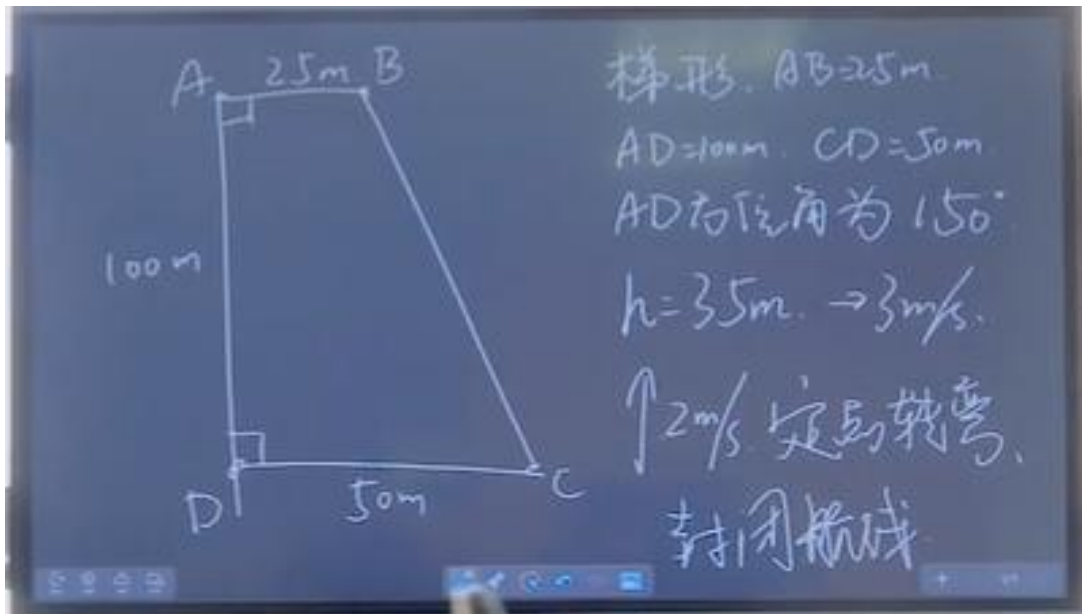 A 25m B
100m
D 50m C
梯形. AB=25m
AD=100m. CD=50m
AD方位角为150°
h=35m. →3m/s.
↑2m/s 定点转弯、
封闭航线